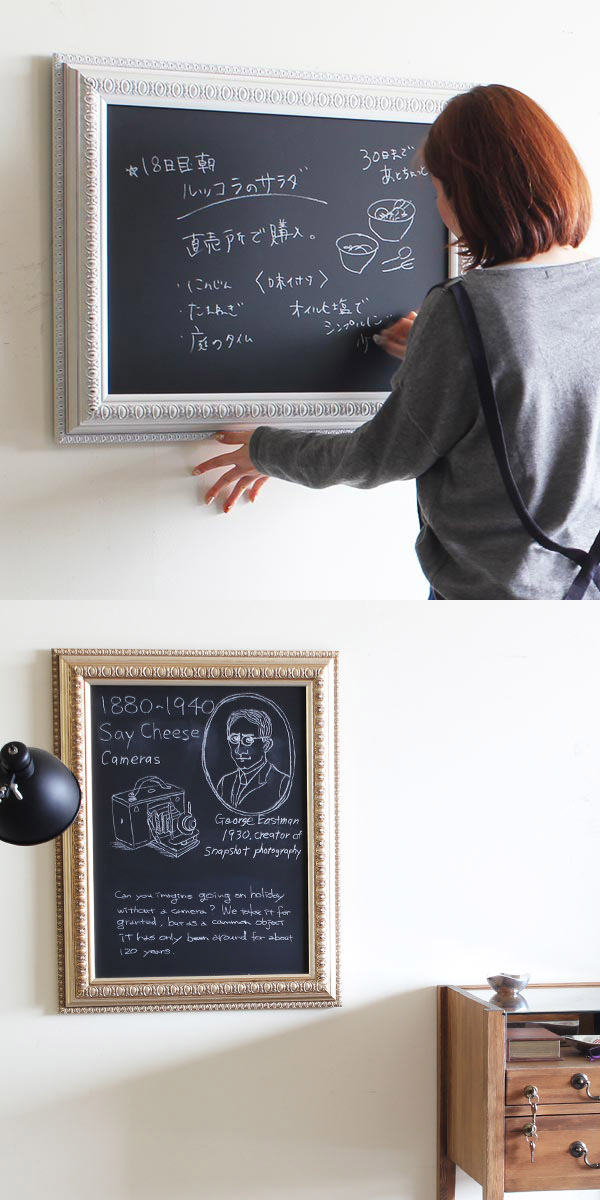 ★18日目朝
ルッコラのサラダ
30日まで
あとちょっと
直売所で購入。
・にんじん
・たまねぎ
・庭のタイム
〈味付け〉
オイルと塩で
シンプルに
1880~1940
Say Cheese
Cameras
George Eastman
1930, creator of
Snapshot photography
Can you imagine going on holiday
without a camera? We take it for
granted, but as a common object
it has only been around for about
120 years.